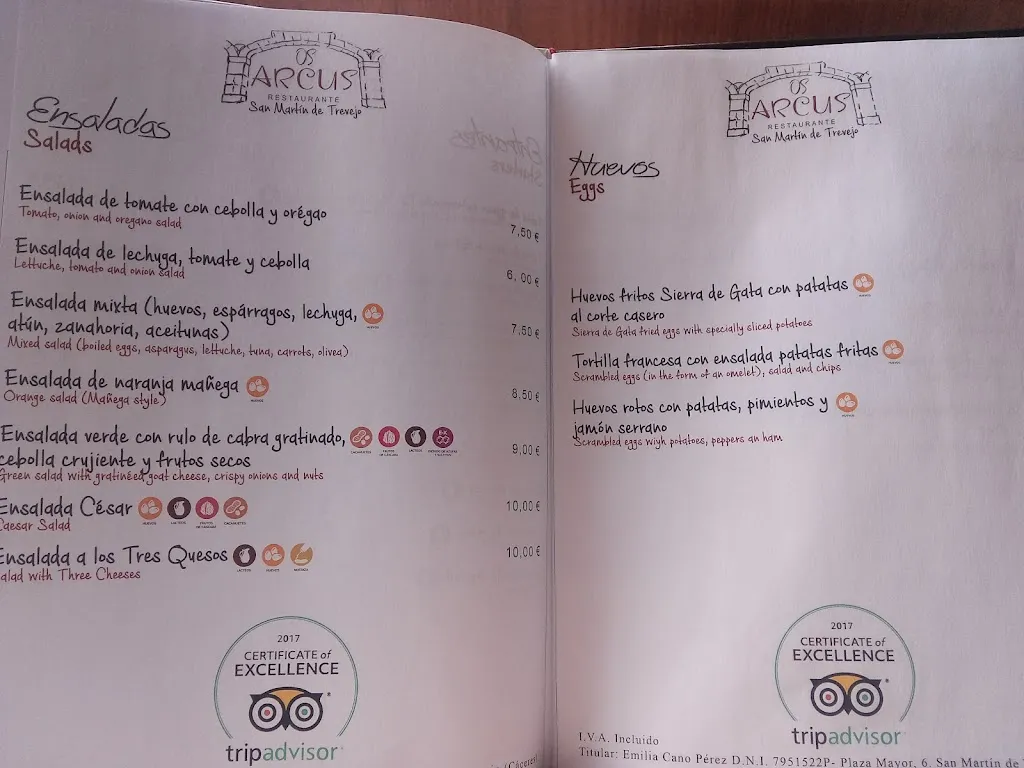 OS
ARCUS
RESTAURANTE
San Martín de Trevejo
Ensaladas
Salads
Ensalada de tomate con cebolla y orégao
Tomato, onion and oregano salad
7,50 €
Ensalada de lechuga, tomate y cebolla
Lettuche, tomato and onion salad
6,00 €
Ensalada mixta (huevos, espárragos, lechuga,
HUEVOS
atún, zanahoria, aceitunas)
7,50 €
Mixed salad (boiled eggs, asparagus, lettuche, tuna, carrots, olivea)
Ensalada de naranja mañega
HUEVOS
Orange salad (Mañega style)
8,50 €
Ensalada verde con rulo de cabra gratinado,
CACAHUETES
FRUTOS DE CÁSCARA
LÁCTEOS
cebolla crujiente y frutos secos
9,00 €
Green salad with gratinéed goat cheese, crispy onions and nuts
Ensalada César
HUEVOS
LÁCTEOS
FRUTOS DE CÁSCARA
CACAHUETES
10,00 €
Caesar Salad
Ensalada a los Tres Quesos
LÁCTEOS
HUEVOS
10,00 €
alad with Three Cheeses
2017
CERTIFICATE of
EXCELLENCE
tripadvisor
OS
ARCUS
RESTAURANTE
San Martín de Trevejo
Huevos
Eggs
Huevos fritos Sierra de Gata con patatas
HUEVOS
al corte casero
Sierra de Gata fried eggs with specially sliced potatoes
Tortilla francesa con ensalada patatas fritas
HUEVOS
Scrambled eggs (in the form of an omelet), salad and chips
Huevos rotos con patatas, pimientos y
HUEVOS
jamón serrano
Scrambled eggs wiyh potatoes, peppers an ham
2017
CERTIFICATE of
EXCELLENCE
tripadvisor
I.V.A. Incluido
Titular: Emilia Cano Pérez D.N.I. 7951522P- Plaza Mayor, 6. San Martin de